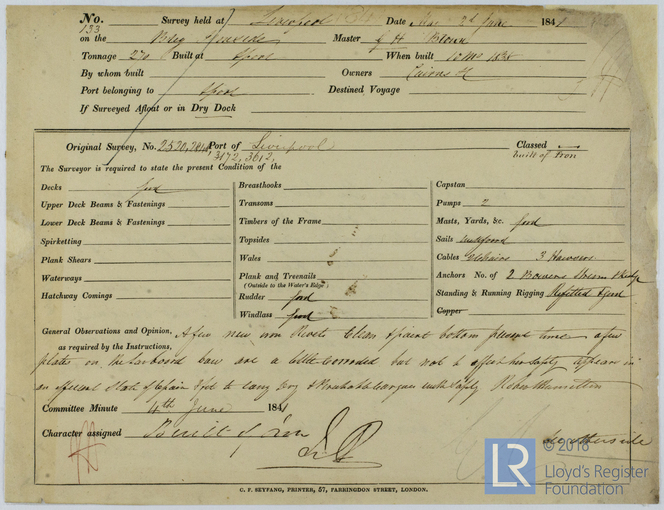 No. 133 Survey held at Liverpool Date 2d June 1841
on the Brig Ironside Master Brown
Tonnage 270 Built at Lpool When built 1838
By whom built Owners Cairns
Port belonging to Lpool Destined Voyage
If Surveyed Afloat or in Dry Dock
Original Survey, No. 2520, Port of Liverpool Classed
3172, 3612, built of Iron
The Surveyor is required to state the present Condition of the
Decks good
Upper Deck Beams & Fastenings
Lower Deck Beams & Fastenings
Spirketting
Plank Shears
Waterways
Hatchway Comings
Breasthooks
Transoms
Timbers of the Frame
Topsides
Wales
Plank and Treenails
(Outside to the Water's Edge)
Rudder good
Windlass good
Capstan
Pumps 2
Masts, Yards, &c. good
Sails
Cables 2 Chains 3 Hawsers
Anchors No. of 2 Bowers Stream & Kedge
Standing & Running Rigging Refitted & good
Copper
General Observations and Opinion, A few new iron Rivets Clean bottom present time a few
as required by the Instructions,
plates on the larboard bow are a little corroded but not to affect her safety appears in
an efficient State of Repair & fit to carry Dry & Perishable Cargoes with Safety
Committee Minute 4th June 1841
Character assigned Built of Iron
© 2018
LR Lloyd's Register
Foundation
C. F. SEYFANG, PRINTER, 57, FARRINGDON STREET, LONDON.